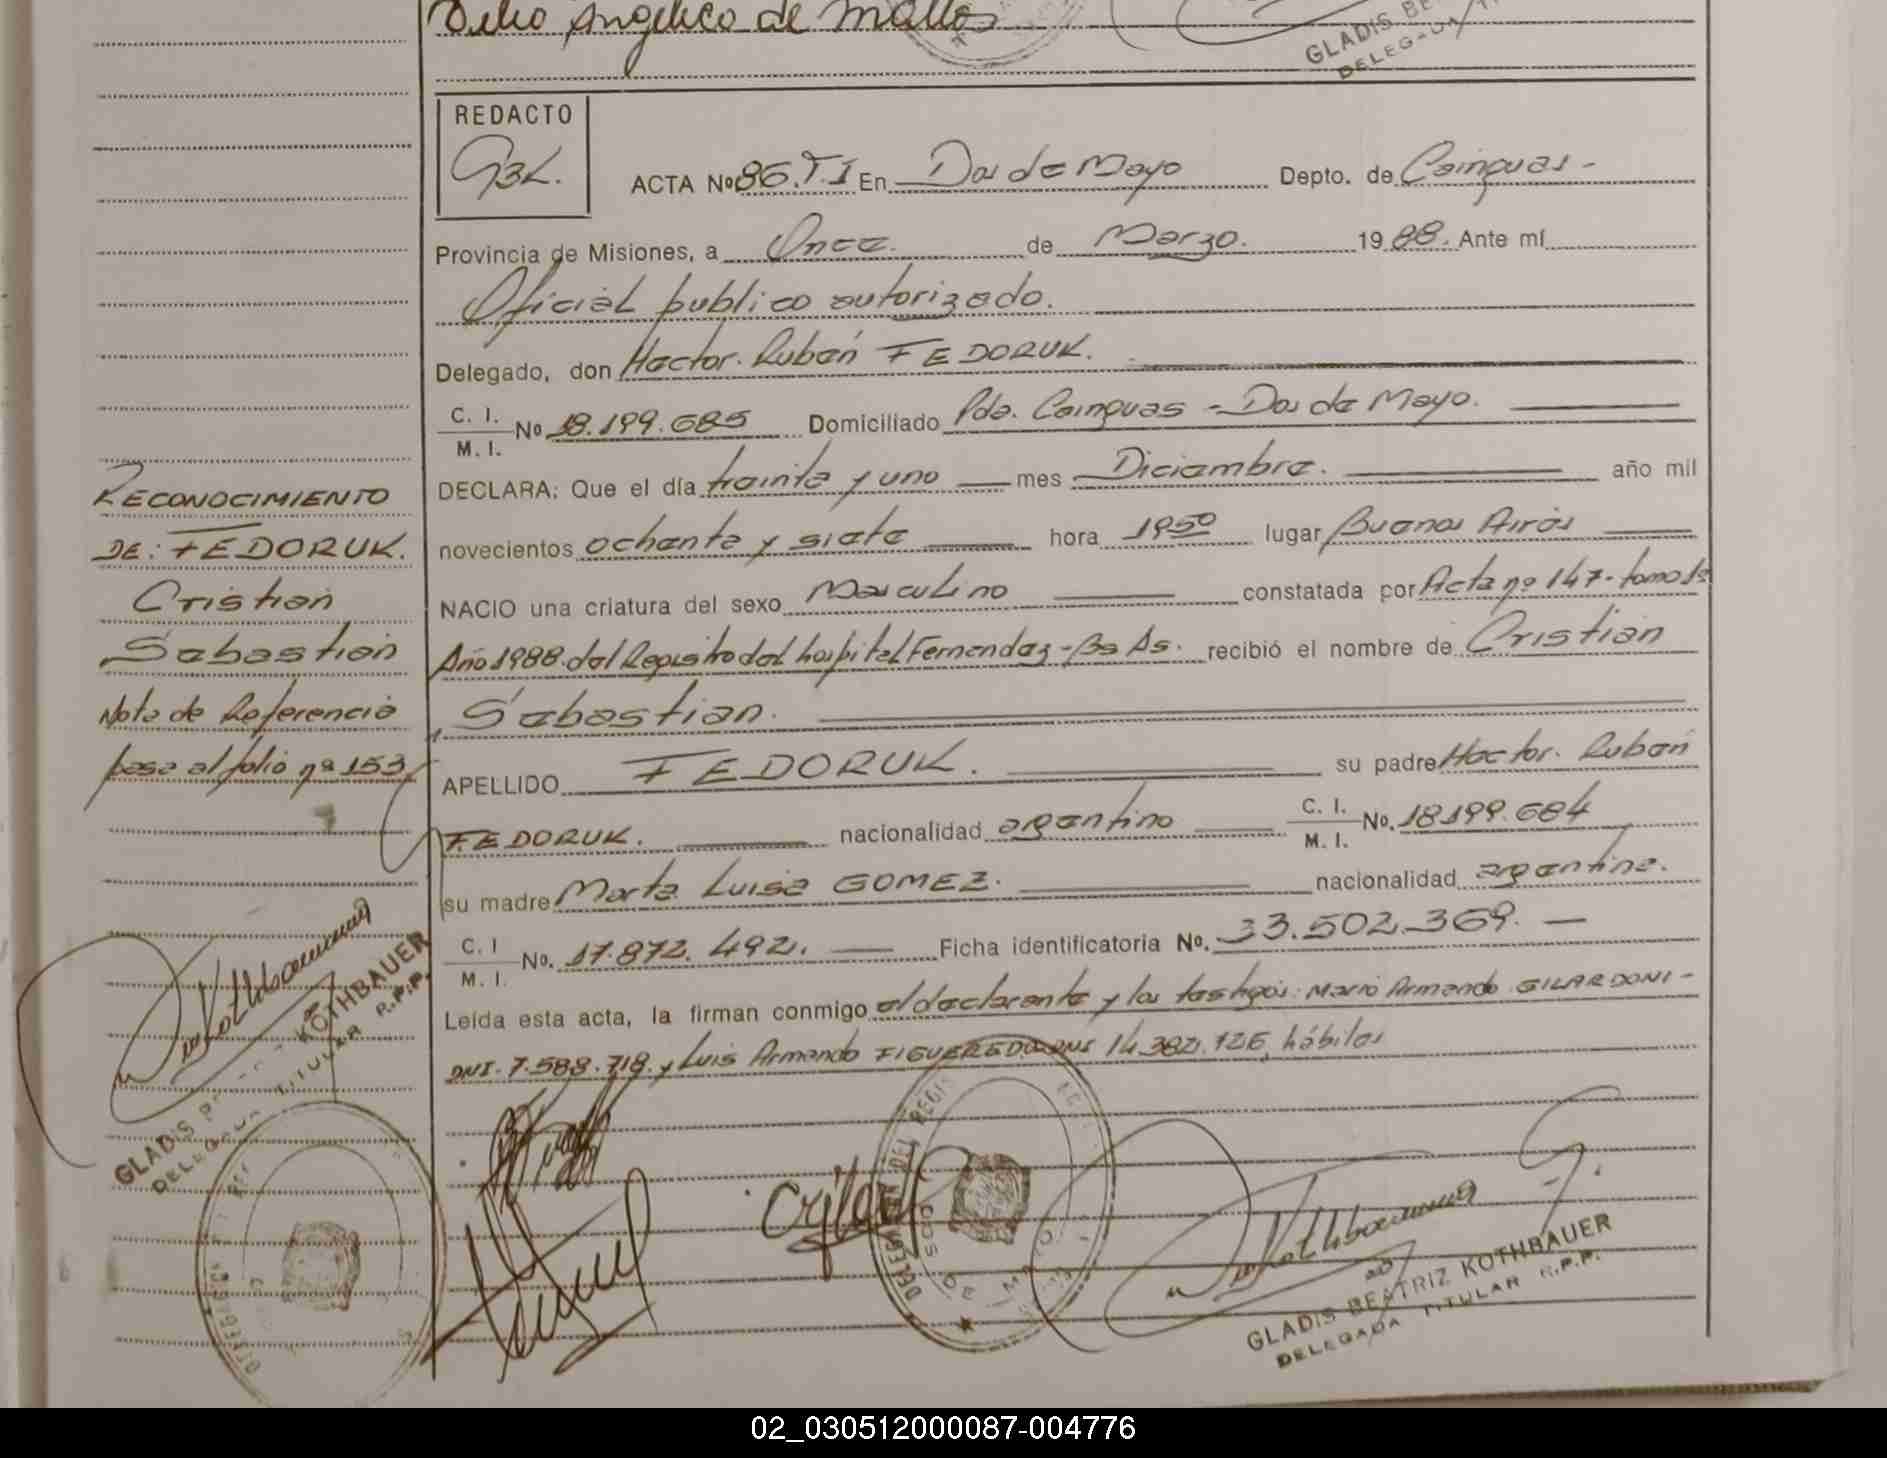 Delio Angelico de Mattos
GLADIS BE
DELEGADA TI
REDACTO
GBK.
ACTA Nº 86.T.I En Dos de Mayo Depto. de Cainguas-
Provincia de Misiones, a Once. de Marzo. 1988. Ante mí
Oficial publico autorizado.
Delegado, don Hector. Rubén FEDORUK.
C. I.
M. I. Nº 18.199.685 Domiciliado Pdo. Cainguas - Dos de Mayo.
DECLARA: Que el día treinta y uno mes Diciembre. año mil
novecientos ochenta y siete hora 1950 lugar Buenos Aires
NACIO una criatura del sexo Masculino constatada por Acta nº 147- tomo 1º
Año 1988. del Registro del hospital Fernendez - Bs As. recibió el nombre de Cristian
Sebastian.
APELLIDO FEDORUK. su padre Hector. Rubén
FEDORUK. nacionalidad argentino C. I.
M. I. No. 18199.684
su madre Marta Luisa GOMEZ. nacionalidad argentina.
C. I
M. I. No. 17.872.492. Ficha identificatoria No. 33.502.369. —
Leída esta acta, la firman conmigo el declarante y los testigos: Mario Armando GILARDONI-
DNI. 7.588.718. y Luis Armando FIGUEREDO DNI 14.382.126, hábiles
RECONOCIMIENTO
DE: FEDORUK.
Cristian
Sebastian
Nota de Referencia
pasa al folio nº 153
Kothbauer
GLADIS B KOTHBAUER
DELEGADA TITULAR R.P.P.
Kothbauer
GLADIS BEATRIZ KOTHBAUER
DELEGADA TITULAR R.P.P.
DOS DE MAYO
02_030512000087-004776